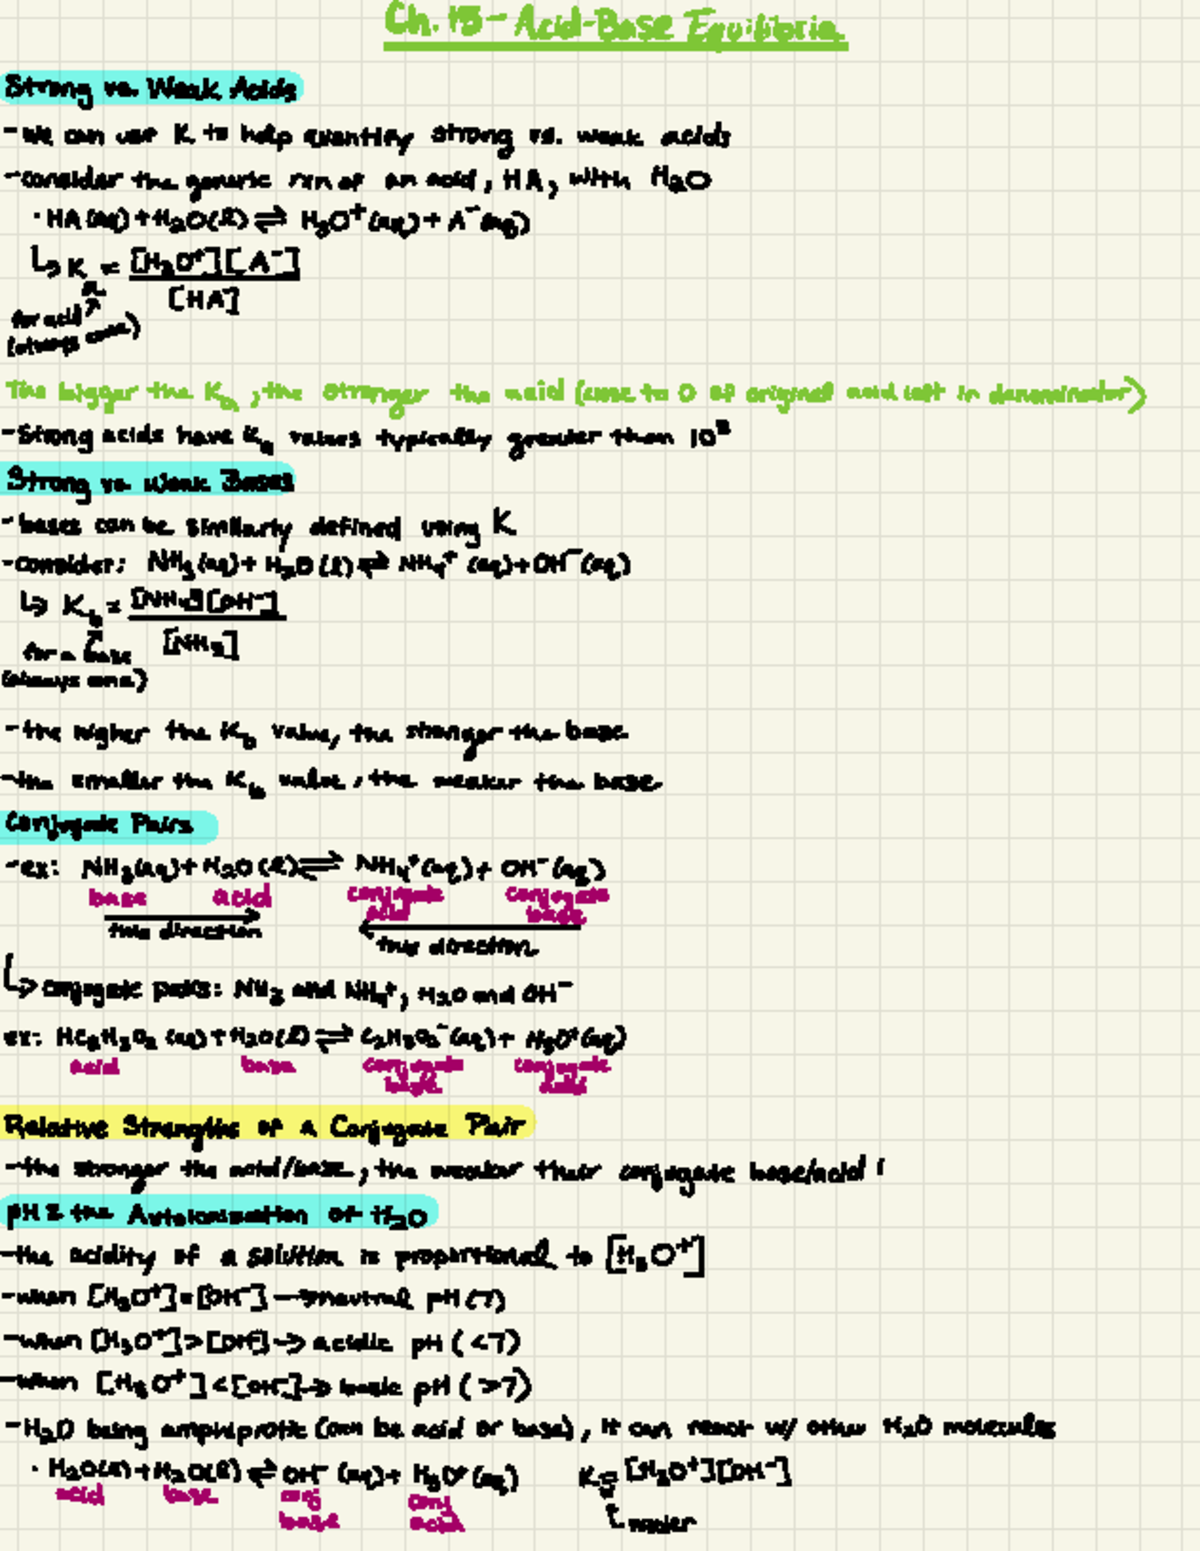 Ch. 15 - Acid-Base Equilibria
Strong vs. Weak Acids
- We can use K to help quantify strong vs. weak acids
- consider the generic rxn of an acid, HA, with H₂O
· HA (aq) + H₂O(l) ⇌ H₃O⁺(aq) + A⁻(aq)
↳ Kₐ = [H₃O⁺][A⁻]
[HA]
for acid
(always one)
The bigger the Kₐ, the stronger the acid (close to 0 of original acid left in denominator)
- Strong acids have Kₐ values typically greater than 10³
Strong vs. Weak Bases
- bases can be similarly defined using K
- consider: NH₃(aq) + H₂O(l) ⇌ NH₄⁺(aq) + OH⁻(aq)
↳ K_b = [NH₄][OH⁻]
[NH₃]
for a base
(always one)
- the higher the K_b value, the stronger the base
- the smaller the K_b value, the weaker the base
Conjugate Pairs
- ex: NH₃(aq) + H₂O(l) ⇌ NH₄⁺(aq) + OH⁻(aq)
base acid conjugate acid conjugate base
this direction this direction
↳ conjugate pairs: NH₃ and NH₄⁺, H₂O and OH⁻
ex: HC₂H₃O₂ (aq) + H₂O(l) ⇌ C₂H₃O₂⁻(aq) + H₃O⁺(aq)
acid base conjugate base conjugate acid
Relative Strengths of a Conjugate Pair
- the stronger the acid/base, the weaker their conjugate base/acid!
pH & the Autoionization of H₂O
- the acidity of a solution is proportional to [H₃O⁺]
- when [H₃O⁺] = [OH⁻] → neutral pH (7)
- when [H₃O⁺] > [OH⁻] → acidic pH (<7)
- when [H₃O⁺] < [OH⁻] → basic pH (>7)
- H₂O being amphiprotic (can be acid or base), it can react w/ other H₂O molecules
· H₂O(l) + H₂O(l) ⇌ OH⁻ (aq) + H₃O⁺(aq) K = [H₃O⁺][OH⁻]
acid base conj base conj acid water